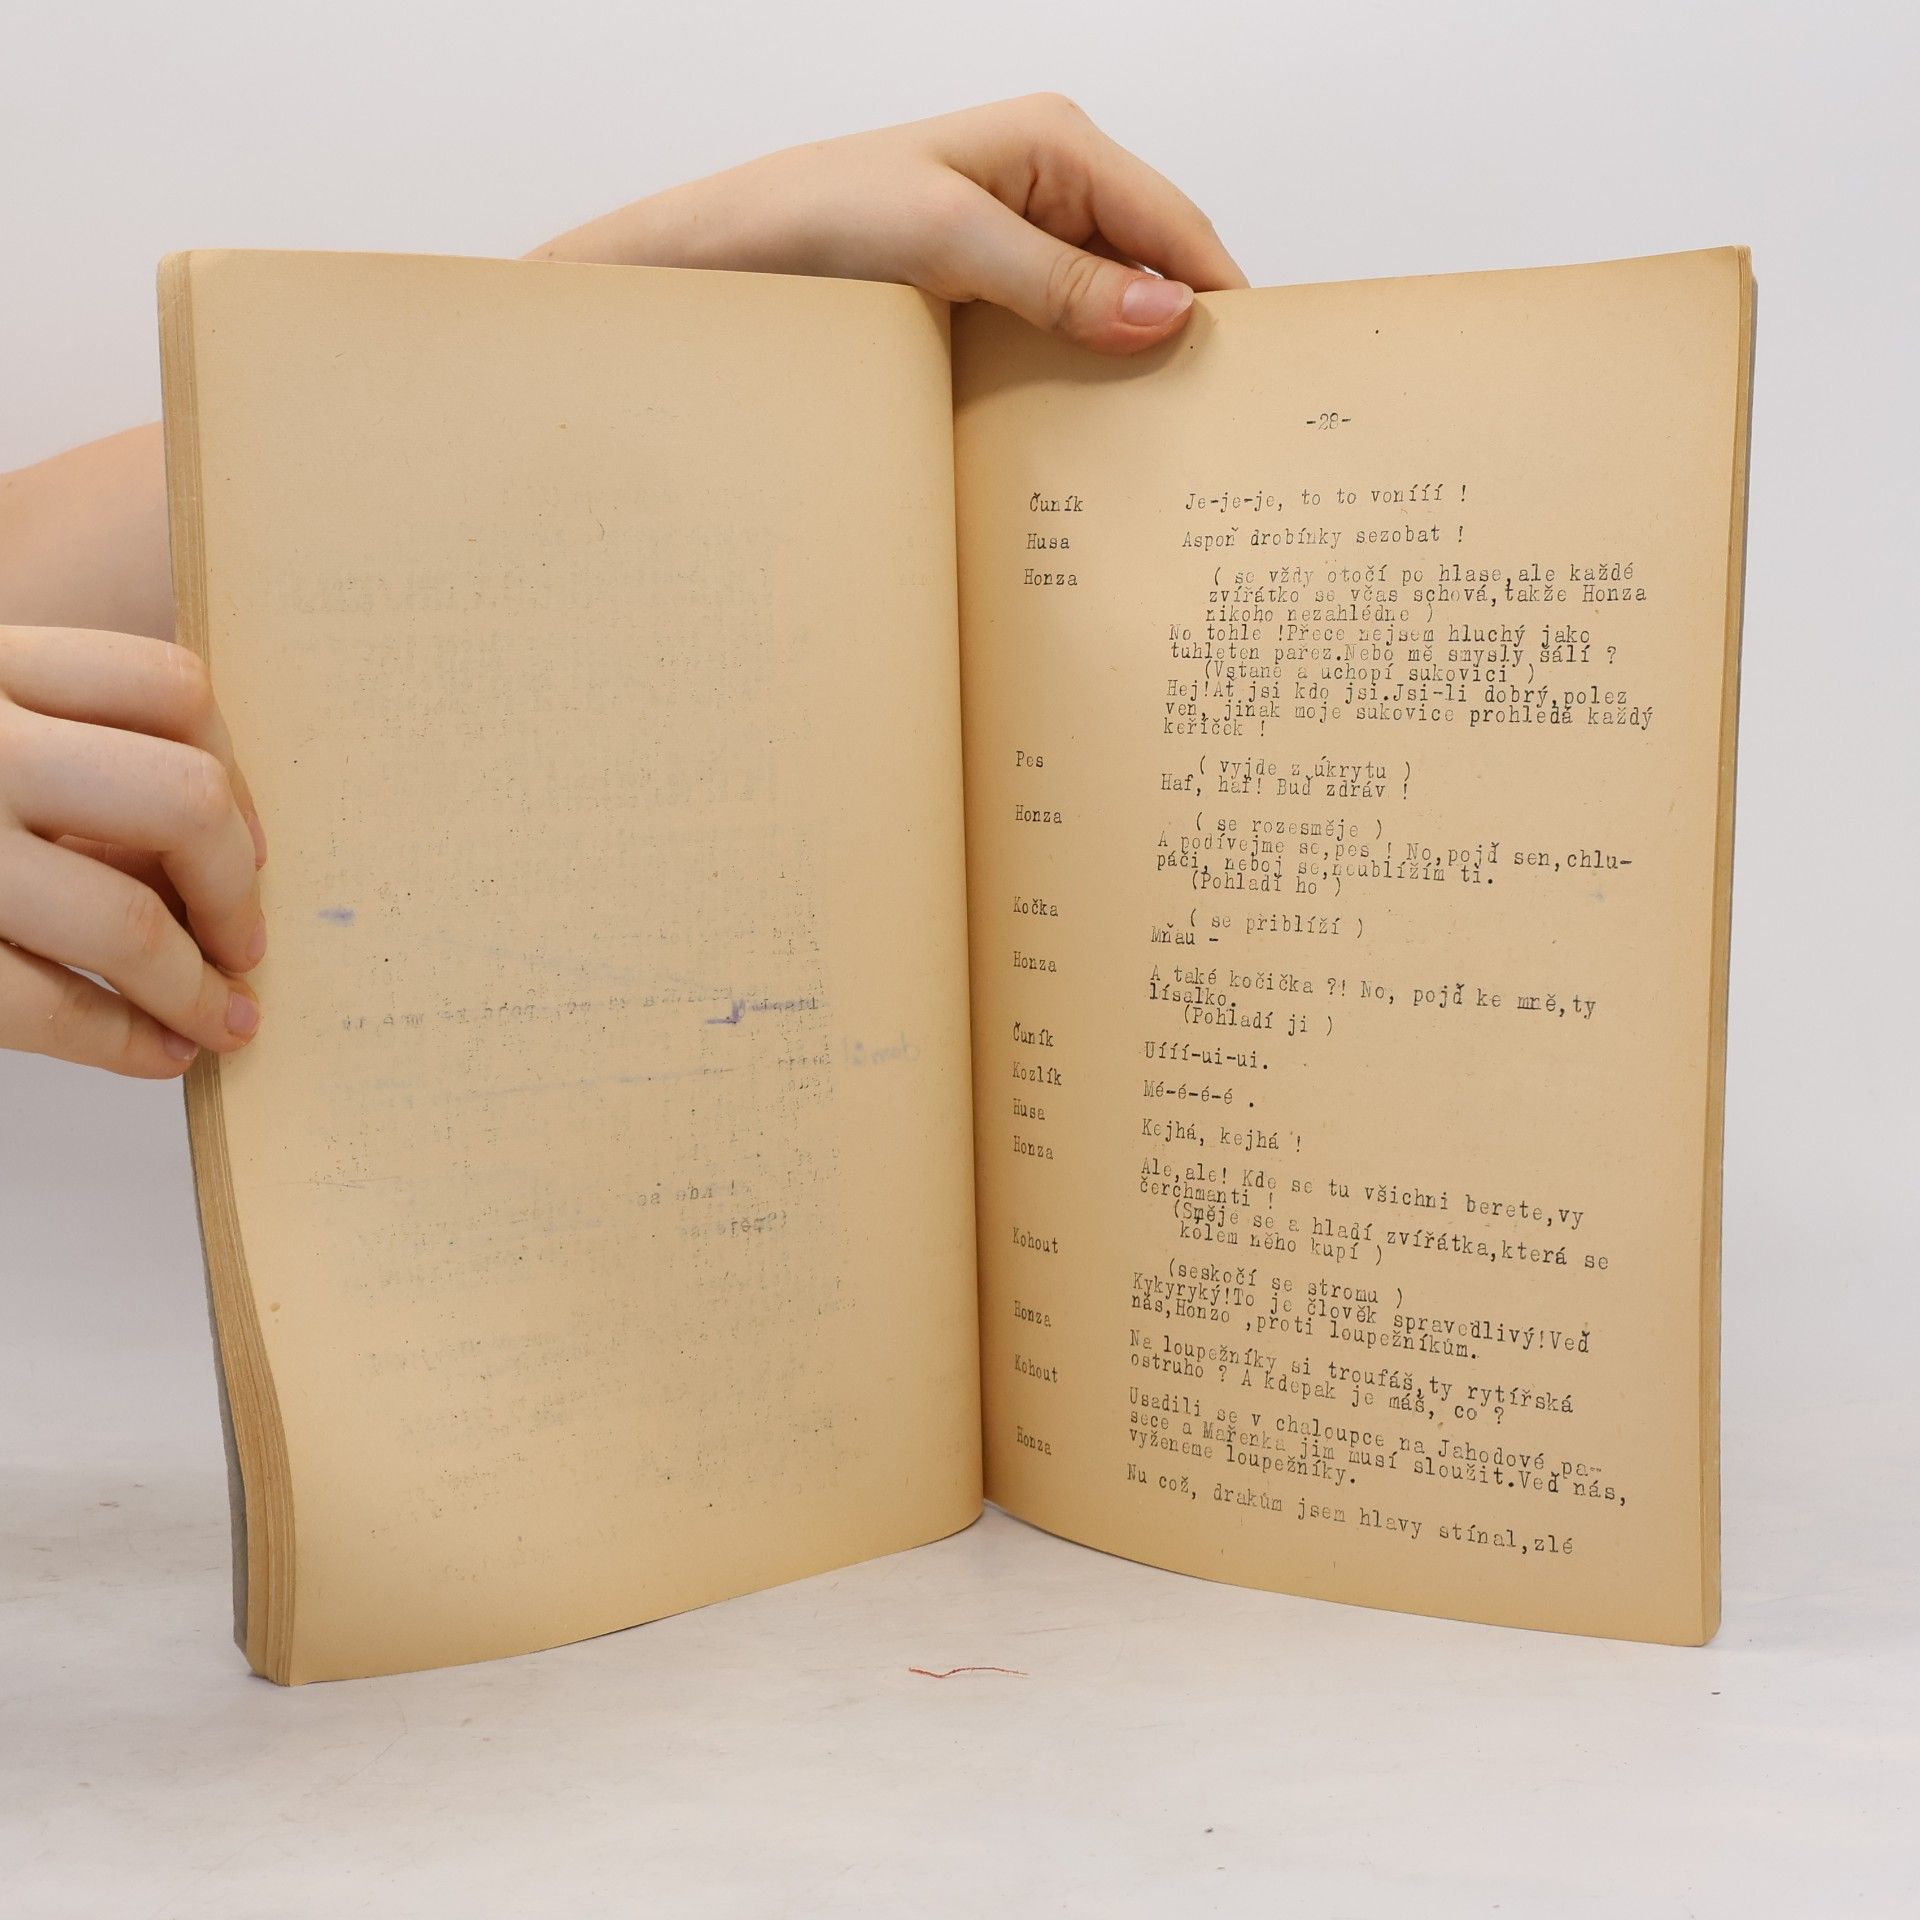 -28-
Čuník Je-je-je, to to vonííí !
Husa Aspoň drobínky sezobat !
Honza ( se vždy otočí po hlase,ale každé
zvířátko se včas schová,takže Honza
nikoho nezahlédne )
No tohle !Přece nejsem hluchý jako
tuhleten pařez.Nebo mě smysly šálí ?
(Vstane a uchopí sukovici )
Hej!Ať jsi kdo jsi.Jsi-li dobrý,polez
ven, jinak moje sukovice prohledá každý
keříček !
Pes ( vyjde z úkrytu )
Haf, haf! Buď zdráv !
Honza ( se rozesměje )
A podívejme se,pes ! No,pojď sen,chlu-
páči, neboj se,neublížím ti.
(Pohladí ho )
Kočka ( se přiblíží )
Mňau -
Honza A také kočička ?! No, pojď ke mně,ty
lísalko.
(Pohladí ji )
Čuník Uííí-ui-ui.
Kozlík Mé-é-é-é .
Husa Kejhá, kejhá !
Honza Ale,ale! Kde se tu všichni berete,vy
čerchmanti !
(Směje se a hladí zvířátka,která se
kolem něho kupí )
Kohout (seskočí se stromu )
Kykyryký!To je člověk spravedlivý!Veď
nás,Honzo ,proti loupežníkům.
Honza Na loupežníky si troufáš,ty rytířská
ostruho ? A kdepak je máš, co ?
Kohout Usadili se v chaloupce na Jahodové pa-
sece a Mařenka jim musí sloužit.Veď nás,
vyženeme loupežníky.
Honza Nu což, drakům jsem hlavy stínal,zlé